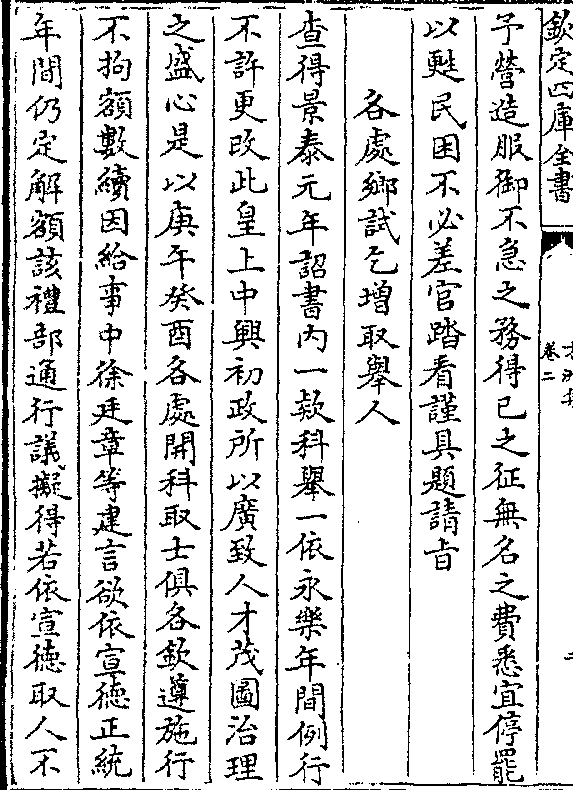 欽定四庫全書
卷二
予營造服御不急之務得已之征無名之費悉宜停罷
以甦民困不必差官踏看謹具題請旨
各處鄉試乞增取舉人
查得景泰元年詔書内一欵科舉一依永樂年間例行
不許更改此皇上中興初政所以廣致人才茂圖治理
之盛心是以庚午癸酉各處開科取士俱各欽遵施行
不拘額數續因給事中徐廷章等建言欲依宣德正統
年間仍定解額該禮部通行議擬得若依宣德取人不